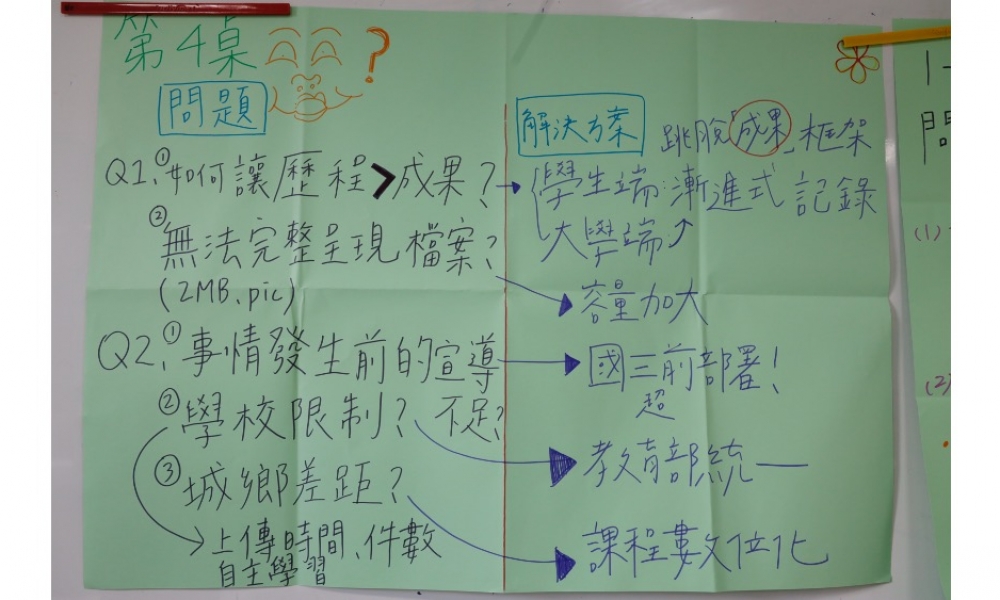 第4桌 ?
問題
Q1、①如何讓歷程>成果?
②無法完整呈現檔案?
(2MB、pic)
Q2、①事情發生前的宣導
②學校限制? 不足?
③城鄉差距?
上傳時間、件數
自主學習
解決方案 跳脫「成果」框架
學生端:漸進式 記錄
大學端
容量加大
國三前部署!
超
教育部統一
課程數位化
(1)
問
(2)